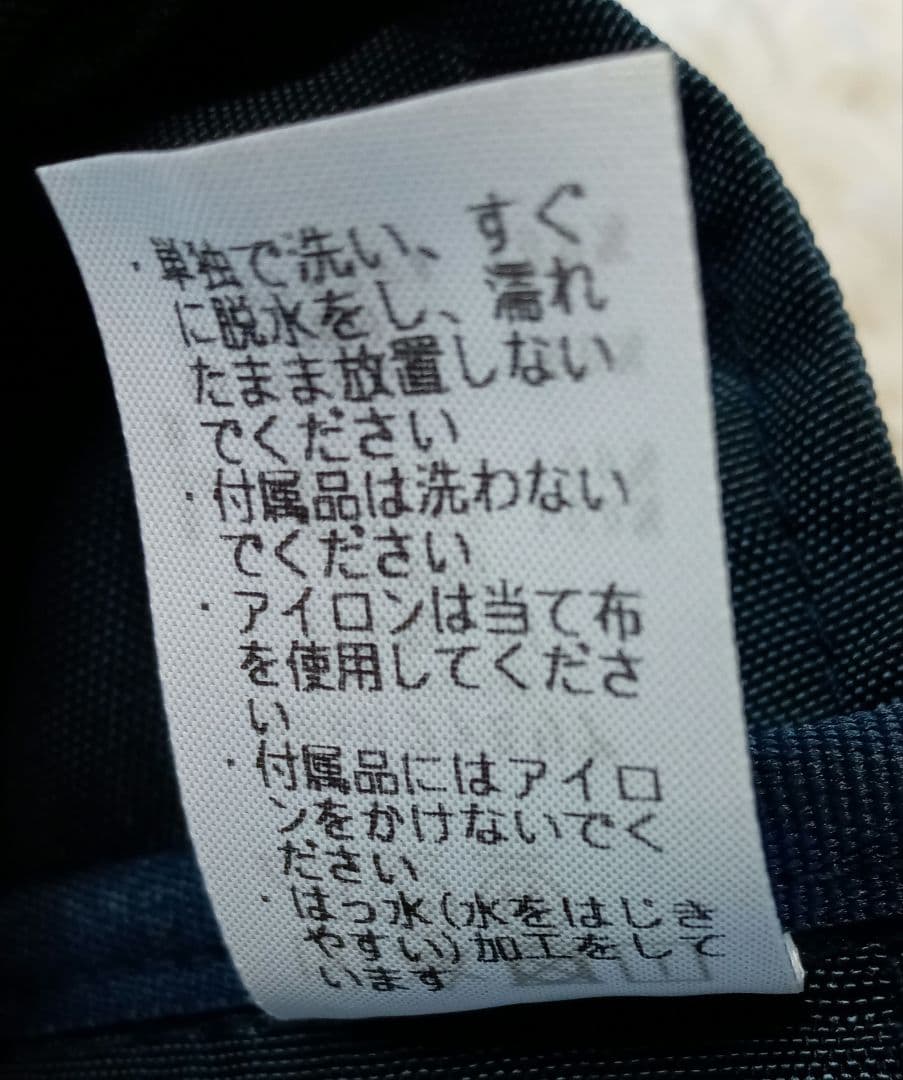 ・単独で洗い、すぐ
に脱水をし、濡れ
たまま放置しない
でください
・付属品は洗わない
でください
・アイロンは当て布
を使用してくださ
い
・付属品にはアイロ
ンをかけないでく
ださい
・はっ水(水をはじき
やすい)加工をして
います